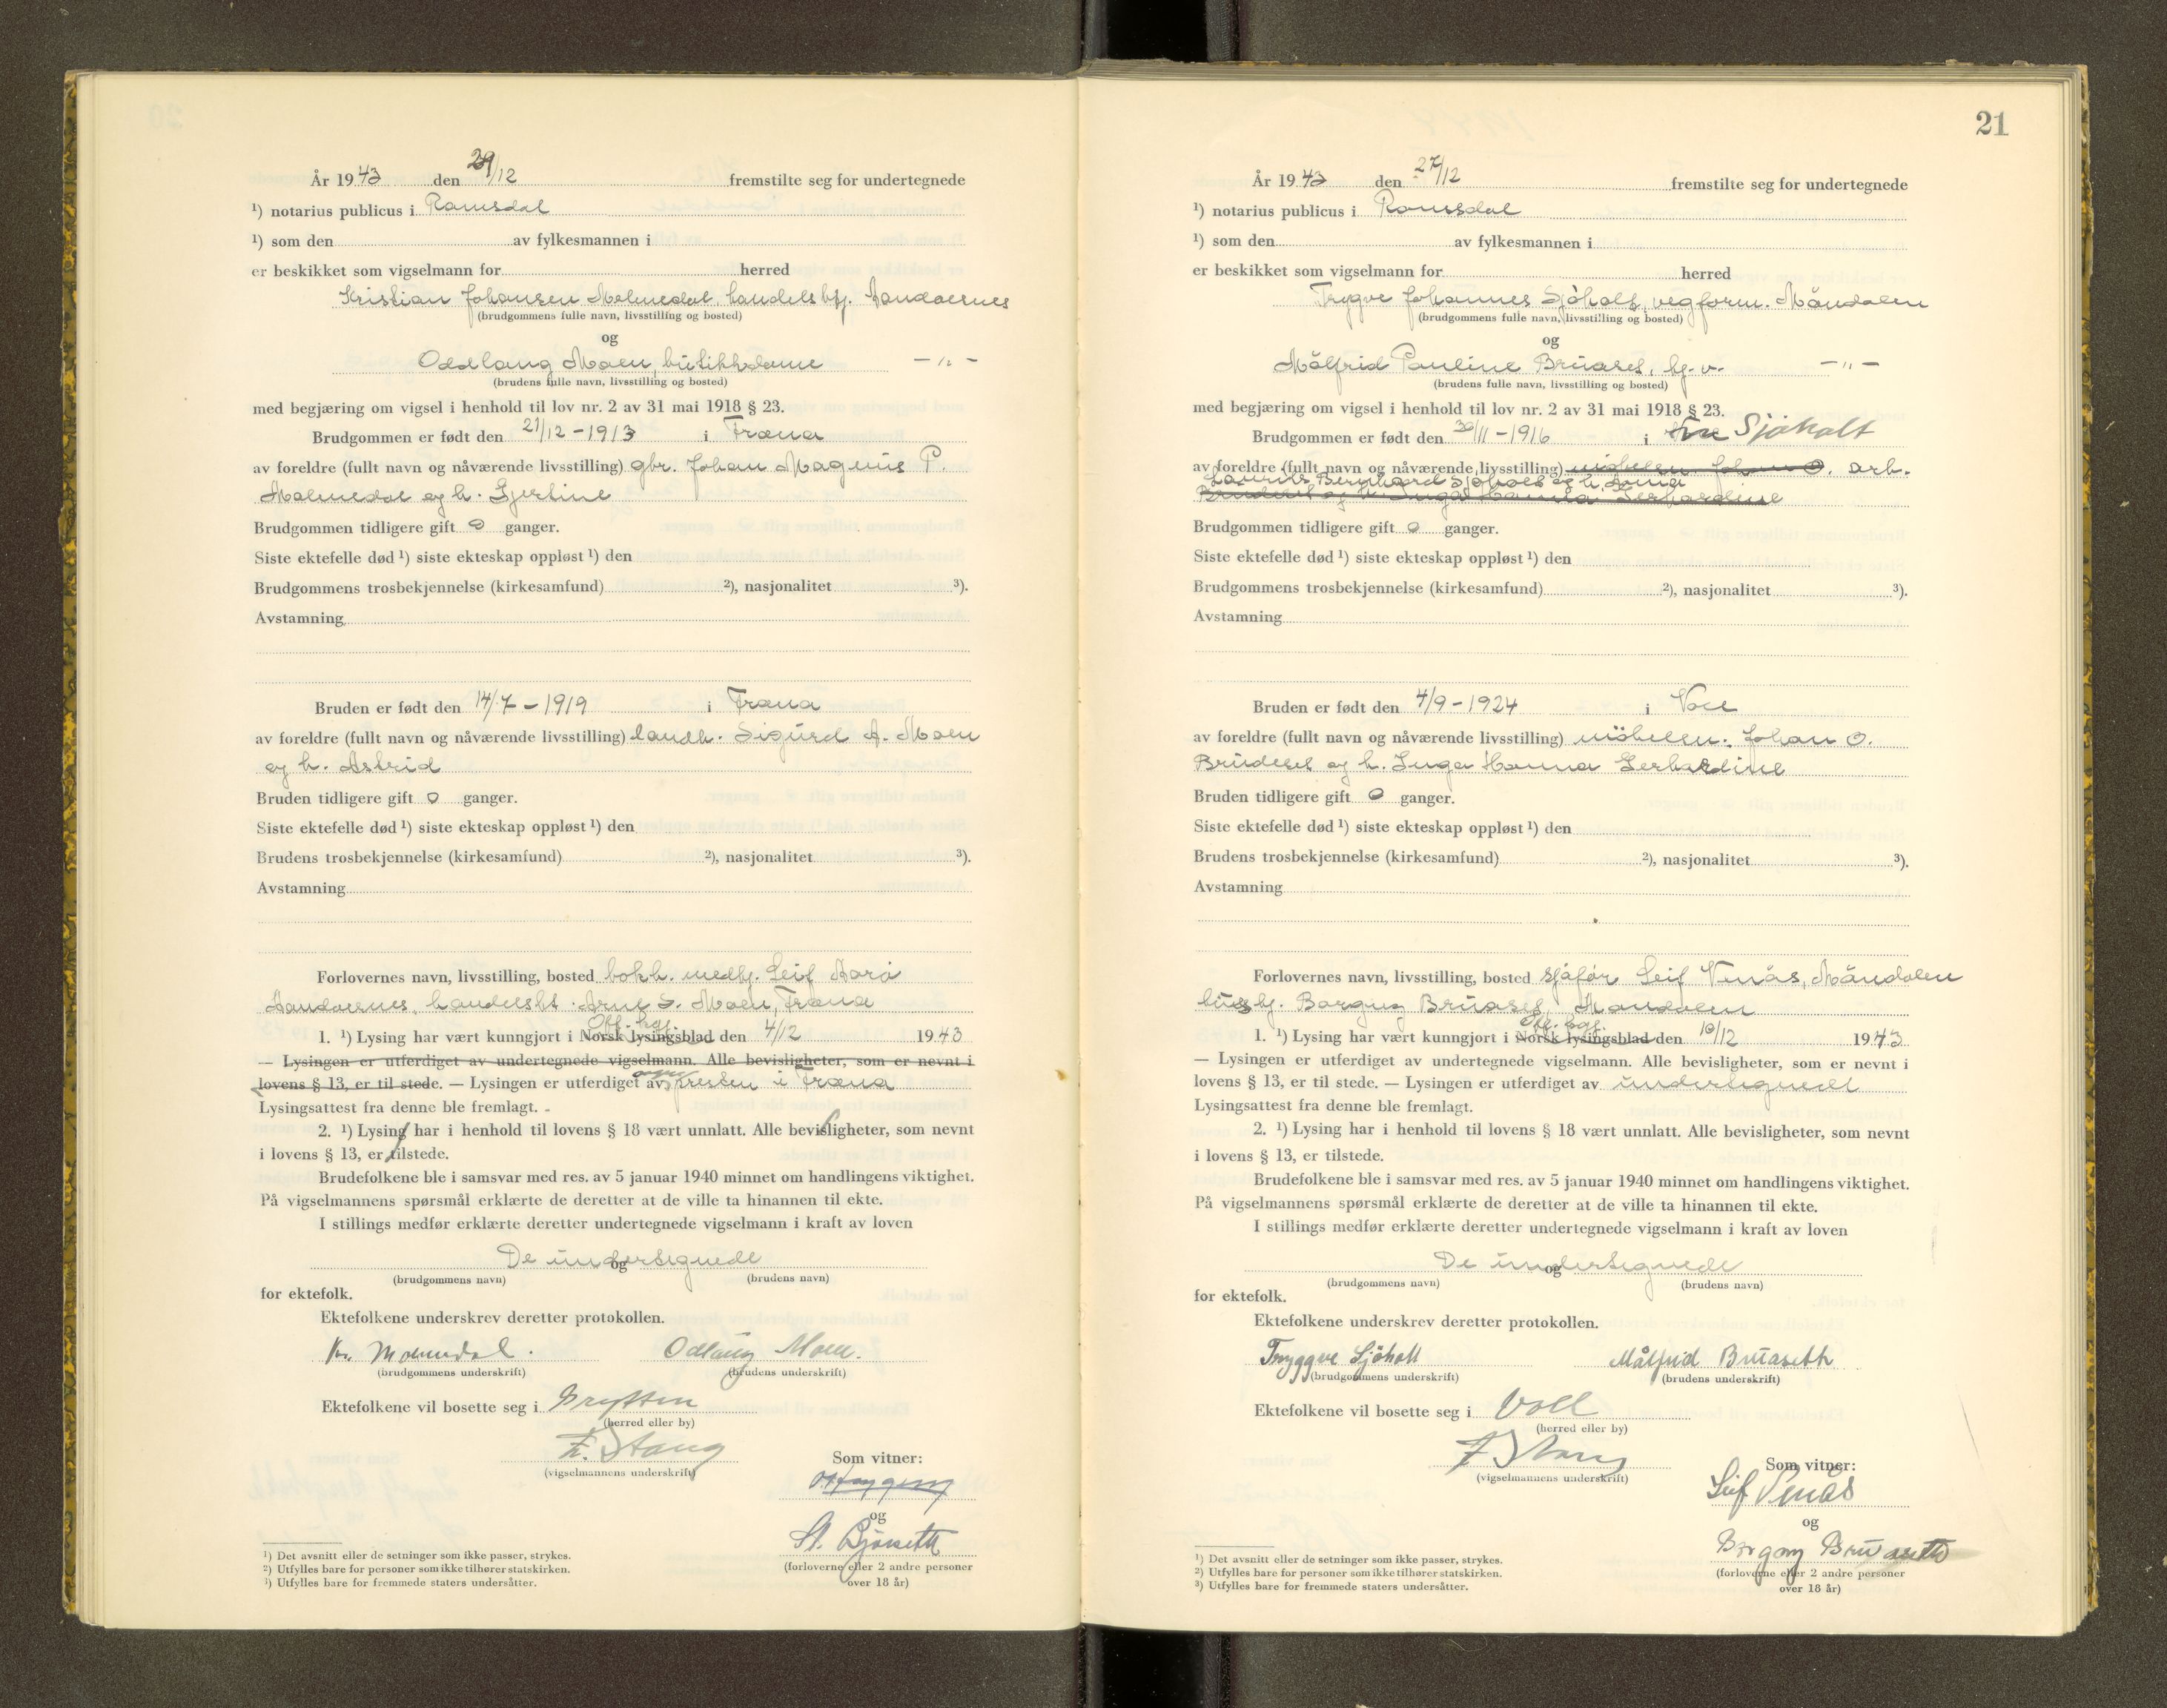 År 1943 den 29/12 fremstilte seg for undertegnede
¹) notarius publicus i Romsdal
¹) som den av fylkesmannen i
er beskikket som vigselmann for herred
Kristian Johansen Malmedal, handelsbtj. Aandalsnes
(brudgommens fulle navn, livsstilling og bosted)
og
Oddlaug Moen, butikkdame —"—
(brudens fulle navn, livsstilling og bosted)
med begjæring om vigsel i henhold til lov nr. 2 av 31 mai 1918 § 23.
Brudgommen er født den 21/12-1913 i Fræna
av foreldre (fullt navn og nåværende livsstilling) gbr. Johan Magnus P.
Malmedal og h. Gjertine
Brudgommen tidligere gift 0 ganger.
Siste ektefelle død ¹) siste ekteskap oppløst ¹) den
Brudgommens trosbekjennelse (kirkesamfund) ²), nasjonalitet ³).
Avstamning
Bruden er født den 14/7-1919 i Fræna
av foreldre (fullt navn og nåværende livsstilling) landh. Sigurd A. Moen
og h. Astrid
Bruden tidligere gift 0 ganger.
Siste ektefelle død ¹) siste ekteskap oppløst ¹) den
Brudens trosbekjennelse (kirkesamfund) ²), nasjonalitet ³).
Avstamning
Forlovernes navn, livsstilling, bosted bokh. medhj. Leif Aarø
Aandalsnes, Arne S. Moen, Fræna
Off. kgj.
1. ¹) Lysing har vært kunngjort i Norsk lysingsblad den 4/12 1943
— Lysingen er utferdiget av undertegnede vigselmann. Alle bevisligheter, som er nevnt i
lovens § 13, er til stede. — Lysingen er utferdiget av presten i Fræna
Lysingsattest fra denne ble fremlagt.
2. ¹) Lysing har i henhold til lovens § 18 vært unnlatt. Alle bevisligheter, som nevnt
i lovens § 13, er tilstede.
Brudefolkene ble i samsvar med res. av 5 januar 1940 minnet om handlingens viktighet.
På vigselmannens spørsmål erklærte de deretter at de ville ta hinannen til ekte.
I stillings medfør erklærte deretter undertegnede vigselmann i kraft av loven
De undertegnede
og
(brudgommens navn) (brudens navn)
for ektefolk.
Ektefolkene underskrev deretter protokollen.
Kr. Malmedal. Odlaug Moen.
(brudgommens underskrift) (brudens underskrift)
Ektefolkene vil bosette seg i Grytten
(herred eller by)
F. Stang
(vigselmannens underskrift)
Som vitner:
og
St. Bjørseth
(forloverne eller 2 andre personer
over 18 år)
¹) Det avsnitt eller de setninger som ikke passer, strykes.
²) Utfylles bare for personer som ikke tilhører statskirken.
³) Utfylles bare for fremmede staters undersåtter.
21
År 1943 den 27/12 fremstilte seg for undertegnede
¹) notarius publicus i Romsdal
¹) som den av fylkesmannen i
er beskikket som vigselmann for herred
Trygve Johannes Sjøholt, vegform. Måndalen
(brudgommens fulle navn, livsstilling og bosted)
og
Målfrid Pauline Bruaset, hj.v. —"—
(brudens fulle navn, livsstilling og bosted)
med begjæring om vigsel i henhold til lov nr. 2 av 31 mai 1918 § 23.
Brudgommen er født den 30/11-1916 i Sjøholt
av foreldre (fullt navn og nåværende livsstilling) møbelsn. Johan O. arb.
Laurits Bernhard Sjøholt og h. Anna
Brudeset og h. Inga Hanna Gerhardine
Brudgommen tidligere gift 0 ganger.
Siste ektefelle død ¹) siste ekteskap oppløst ¹) den
Brudgommens trosbekjennelse (kirkesamfund) ²), nasjonalitet ³).
Avstamning
Bruden er født den 4/9-1924 i Voll
av foreldre (fullt navn og nåværende livsstilling) møbelsn. Johan O.
Brudeset og h. Inga Hanna Gerhardine
Bruden tidligere gift 0 ganger.
Siste ektefelle død ¹) siste ekteskap oppløst ¹) den
Brudens trosbekjennelse (kirkesamfund) ²), nasjonalitet ³).
Avstamning
Forlovernes navn, livsstilling, bosted sjåfør Leif Venås, Måndalen
Borgny Bruaset, Mandalen
Off. kgj.
1. ¹) Lysing har vært kunngjort i Norsk lysingsblad den 10/12 1943
— Lysingen er utferdiget av undertegnede vigselmann. Alle bevisligheter, som er nevnt i
lovens § 13, er til stede. — Lysingen er utferdiget av undertegnede
Lysingsattest fra denne ble fremlagt.
2. ¹) Lysing har i henhold til lovens § 18 vært unnlatt. Alle bevisligheter, som nevnt
i lovens § 13, er tilstede.
Brudefolkene ble i samsvar med res. av 5 januar 1940 minnet om handlingens viktighet.
På vigselmannens spørsmål erklærte de deretter at de ville ta hinannen til ekte.
I stillings medfør erklærte deretter undertegnede vigselmann i kraft av loven
De undertegnede
og
(brudgommens navn) (brudens navn)
for ektefolk.
Ektefolkene underskrev deretter protokollen.
Tryggve Sjöholt Målfrid Bruaseth
(brudgommens underskrift) (brudens underskrift)
Ektefolkene vil bosette seg i Voll
(herred eller by)
F Stang
(vigselmannens underskrift)
Som vitner:
Leif Venås
og
Borgny Bruaseth
(forloverne eller 2 andre personer
over 18 år)
¹) Det avsnitt eller de setninger som ikke passer, strykes.
²) Utfylles bare for personer som ikke tilhører statskirken.
³) Utfylles bare for fremmede staters undersåtter.